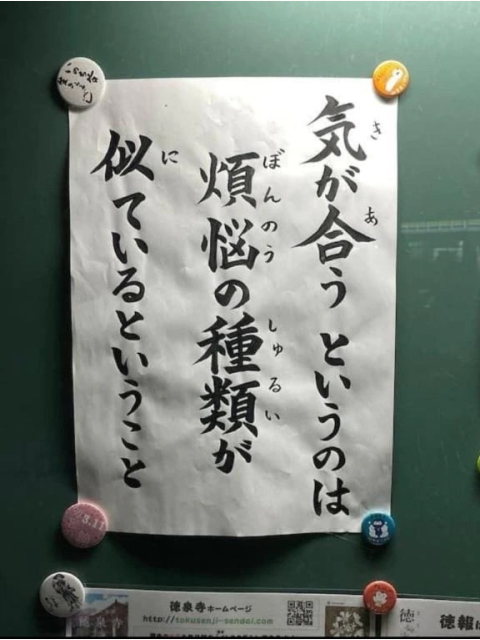 気が合う というのは
煩悩の種類が
似ているということ
き
あ
ぼんのう
しゅるい
に
3.11
徳泉寺ホームページ
http://tokusenji-sendai.com
徳泉寺
徳
徳報